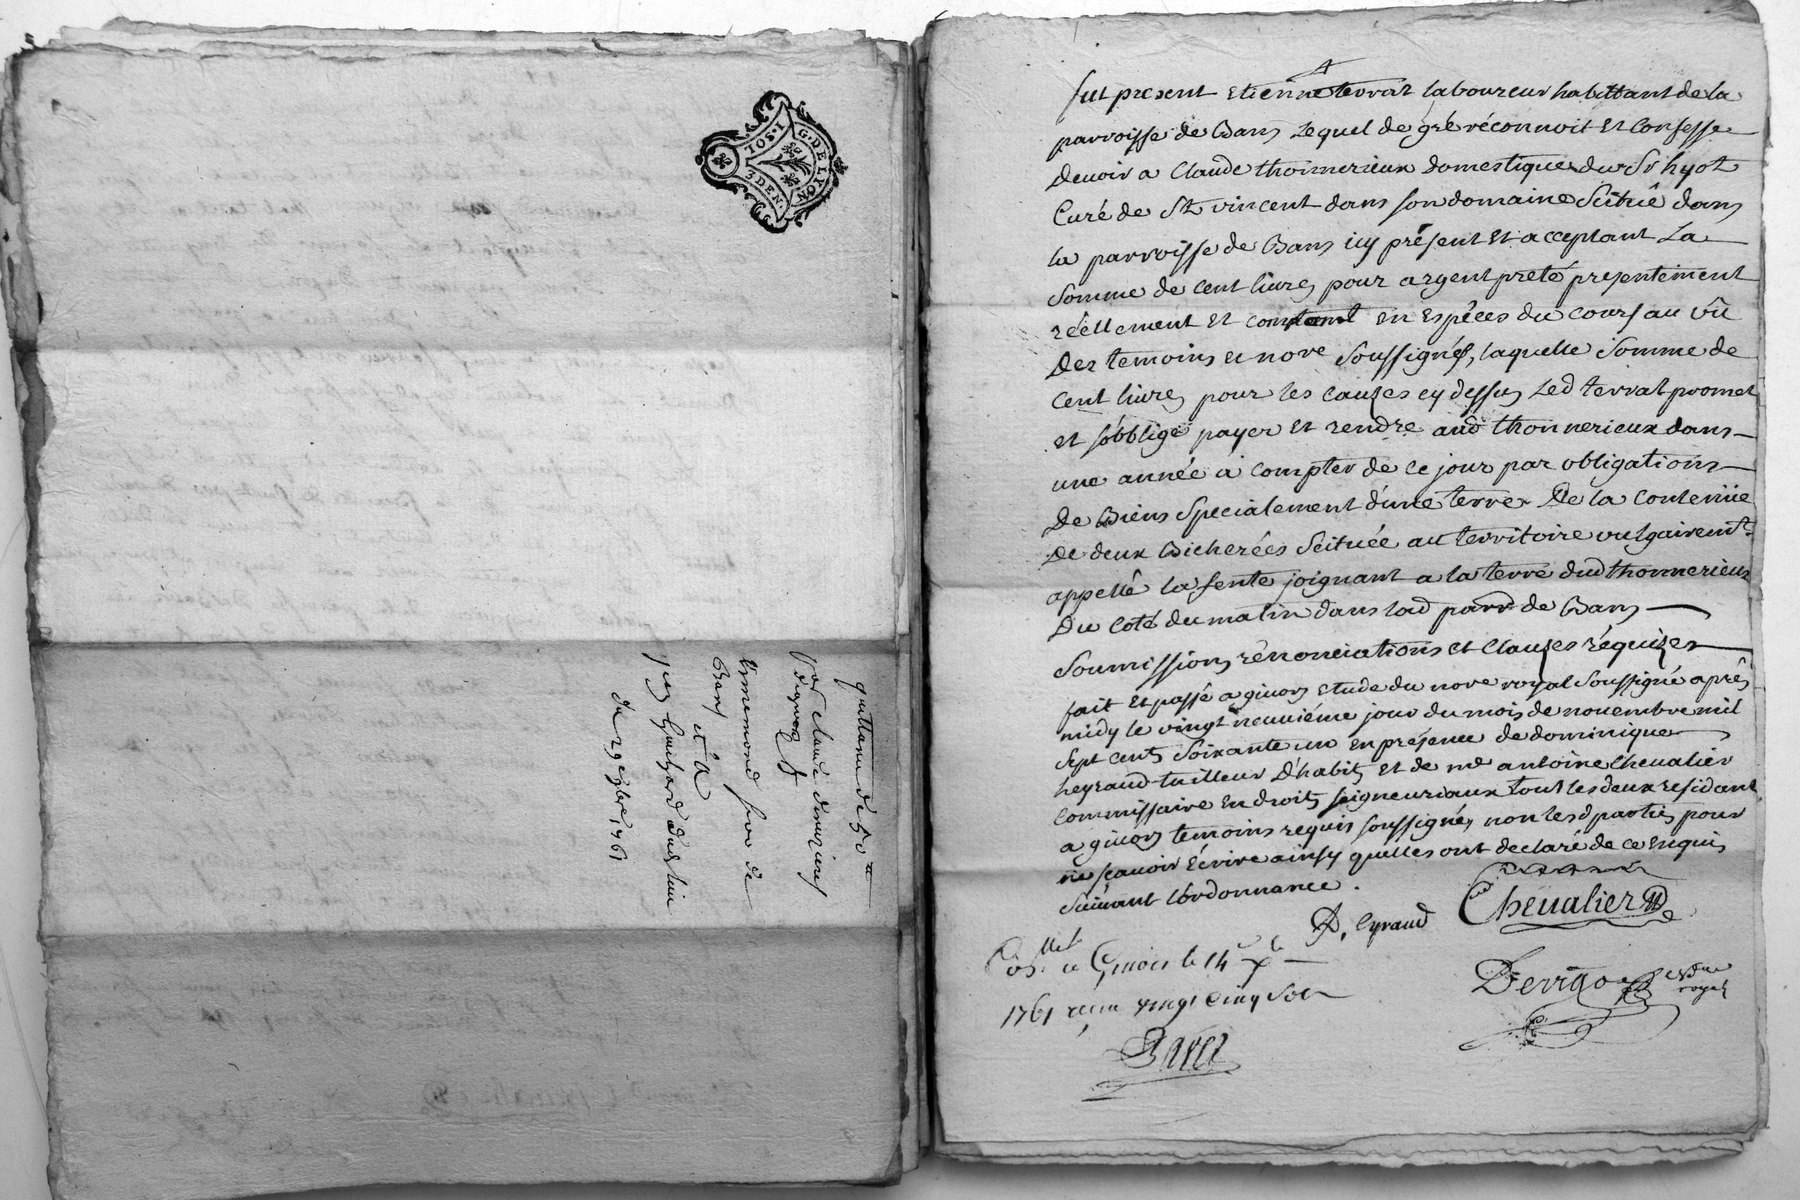 G. DE LYON
10S. I. SOL
3 DEN.
quittance de 50
par claude
Bans
et a
du 29 9bre 1761
fut present Etienne terrat laboureur habittant de la
parroisse de Bans Lequel de gré réconnoit Et Confesse
Devoir a Claude thonnerieux Domestique du Sr hyot
Curé de St vincent dans son domaine Scitué dans
la parroisse de Bans icy présent Et acceptant La
Somme de Cent livres pour argent preté presentement
réellement Et comptant en Espéces du cours au vû
Des temoins et nore Soussignés, laquelle Somme de
Cent livres pour les cauzes cy dessus Led terrat promet
et s'obblige payer Et rendre aud thonnerieux dans
une année a compter de ce jour par obligations
De Biens Specialement d'une terre De la Contenüe
De deux Bicherées Scituée au territoire vulgairemt
appellé la fente joignant a la terre dud thonnerieux
Du Coté du matin dans lad parr de Bans
Soumissions rénonciations et Clauzes réquizes
fait Et passé a givors Etude du nore royal Soussigné aprés
midy le vingt neuviéme jour du mois de novembre mil
Sept Cents Soixante un En présence de dominique
heyraud tailleur D'habits Et de me antoine Chevalier
Commissaire En droits seigneuriaux tout les deux residant
a givors temoins requis soussignés non lesd parties pour
ne scavoir Ecrire ainsy quelles ont declaré de ce Enquis
Suivant L'ordonnance.
D. Eyraud Chevalier
le 14 Xbre
1761 reçu vingt cinq sols
royal